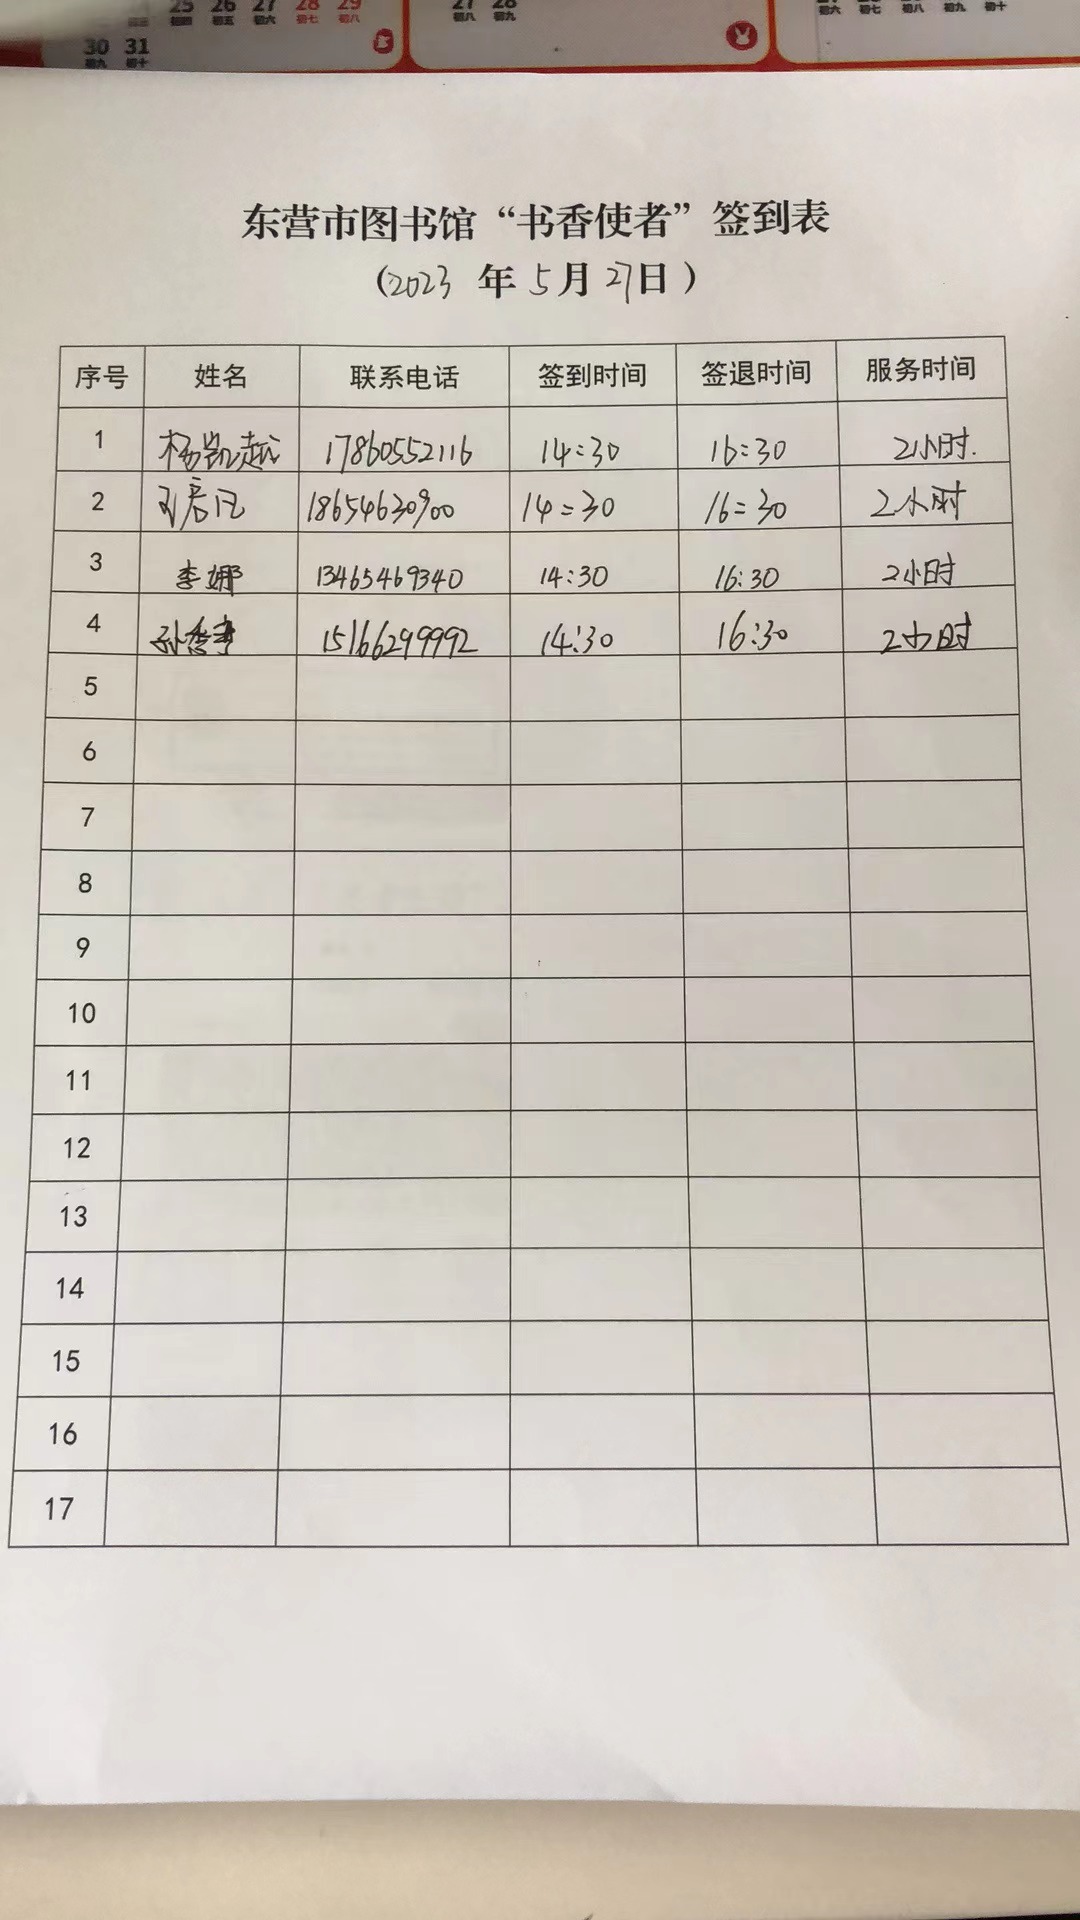 25 26 27 28 29
初四 初五 初六 初七 初八
27 28
初八 初九
初六 初七 初八 初九 初十
30 31
初九 初十
东营市图书馆“书香使者”签到表
(2023 年 5 月 27 日)
序号 姓名 联系电话 签到时间 签退时间 服务时间
1 杨凯越 17860552116 14:30 16:30 2小时.
2 18654630900 14:30 16:30 2小时
3 李娜 13465469340 14:30 16:30 2小时
4 15166299992 14:30 16:30 2小时
5
6
7
8
9
10
11
12
13
14
15
16
17